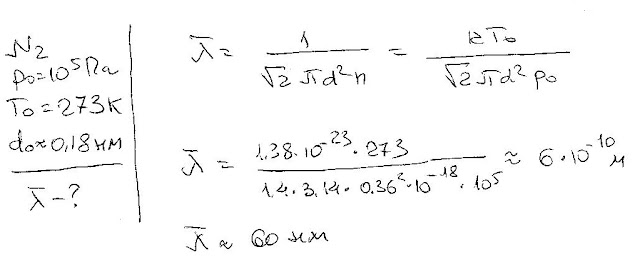 N₂
p₀=10⁵Па
T₀=273К
d₀≈0,18нм
λ̄-?
λ̄ = 1 / (√2 πd²n) = kT₀ / (√2 πd² p₀)
λ̄ = (1,38·10⁻²³·273) / (1.4·3,14·0.36²·10⁻¹⁸·10⁵) ≈ 6·10⁻¹⁰ м
λ̄ ≈ 60 нм